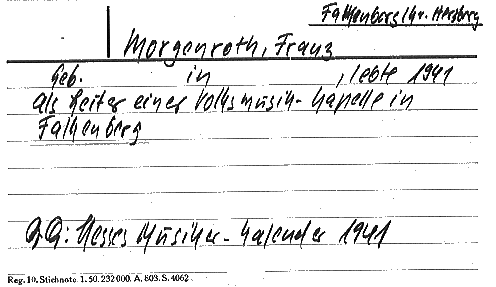 Falkenberg/Kr. Herzberg
Morgenroth, Franz
Geb. in , lebte 1941
als Leiter einer Volksmusik-Kapelle in
Falkenberg
Hesses Musiker-Kalender 1941
Reg. 10. Stichnote. 1. 50. 232 000. A. 803. S. 4062